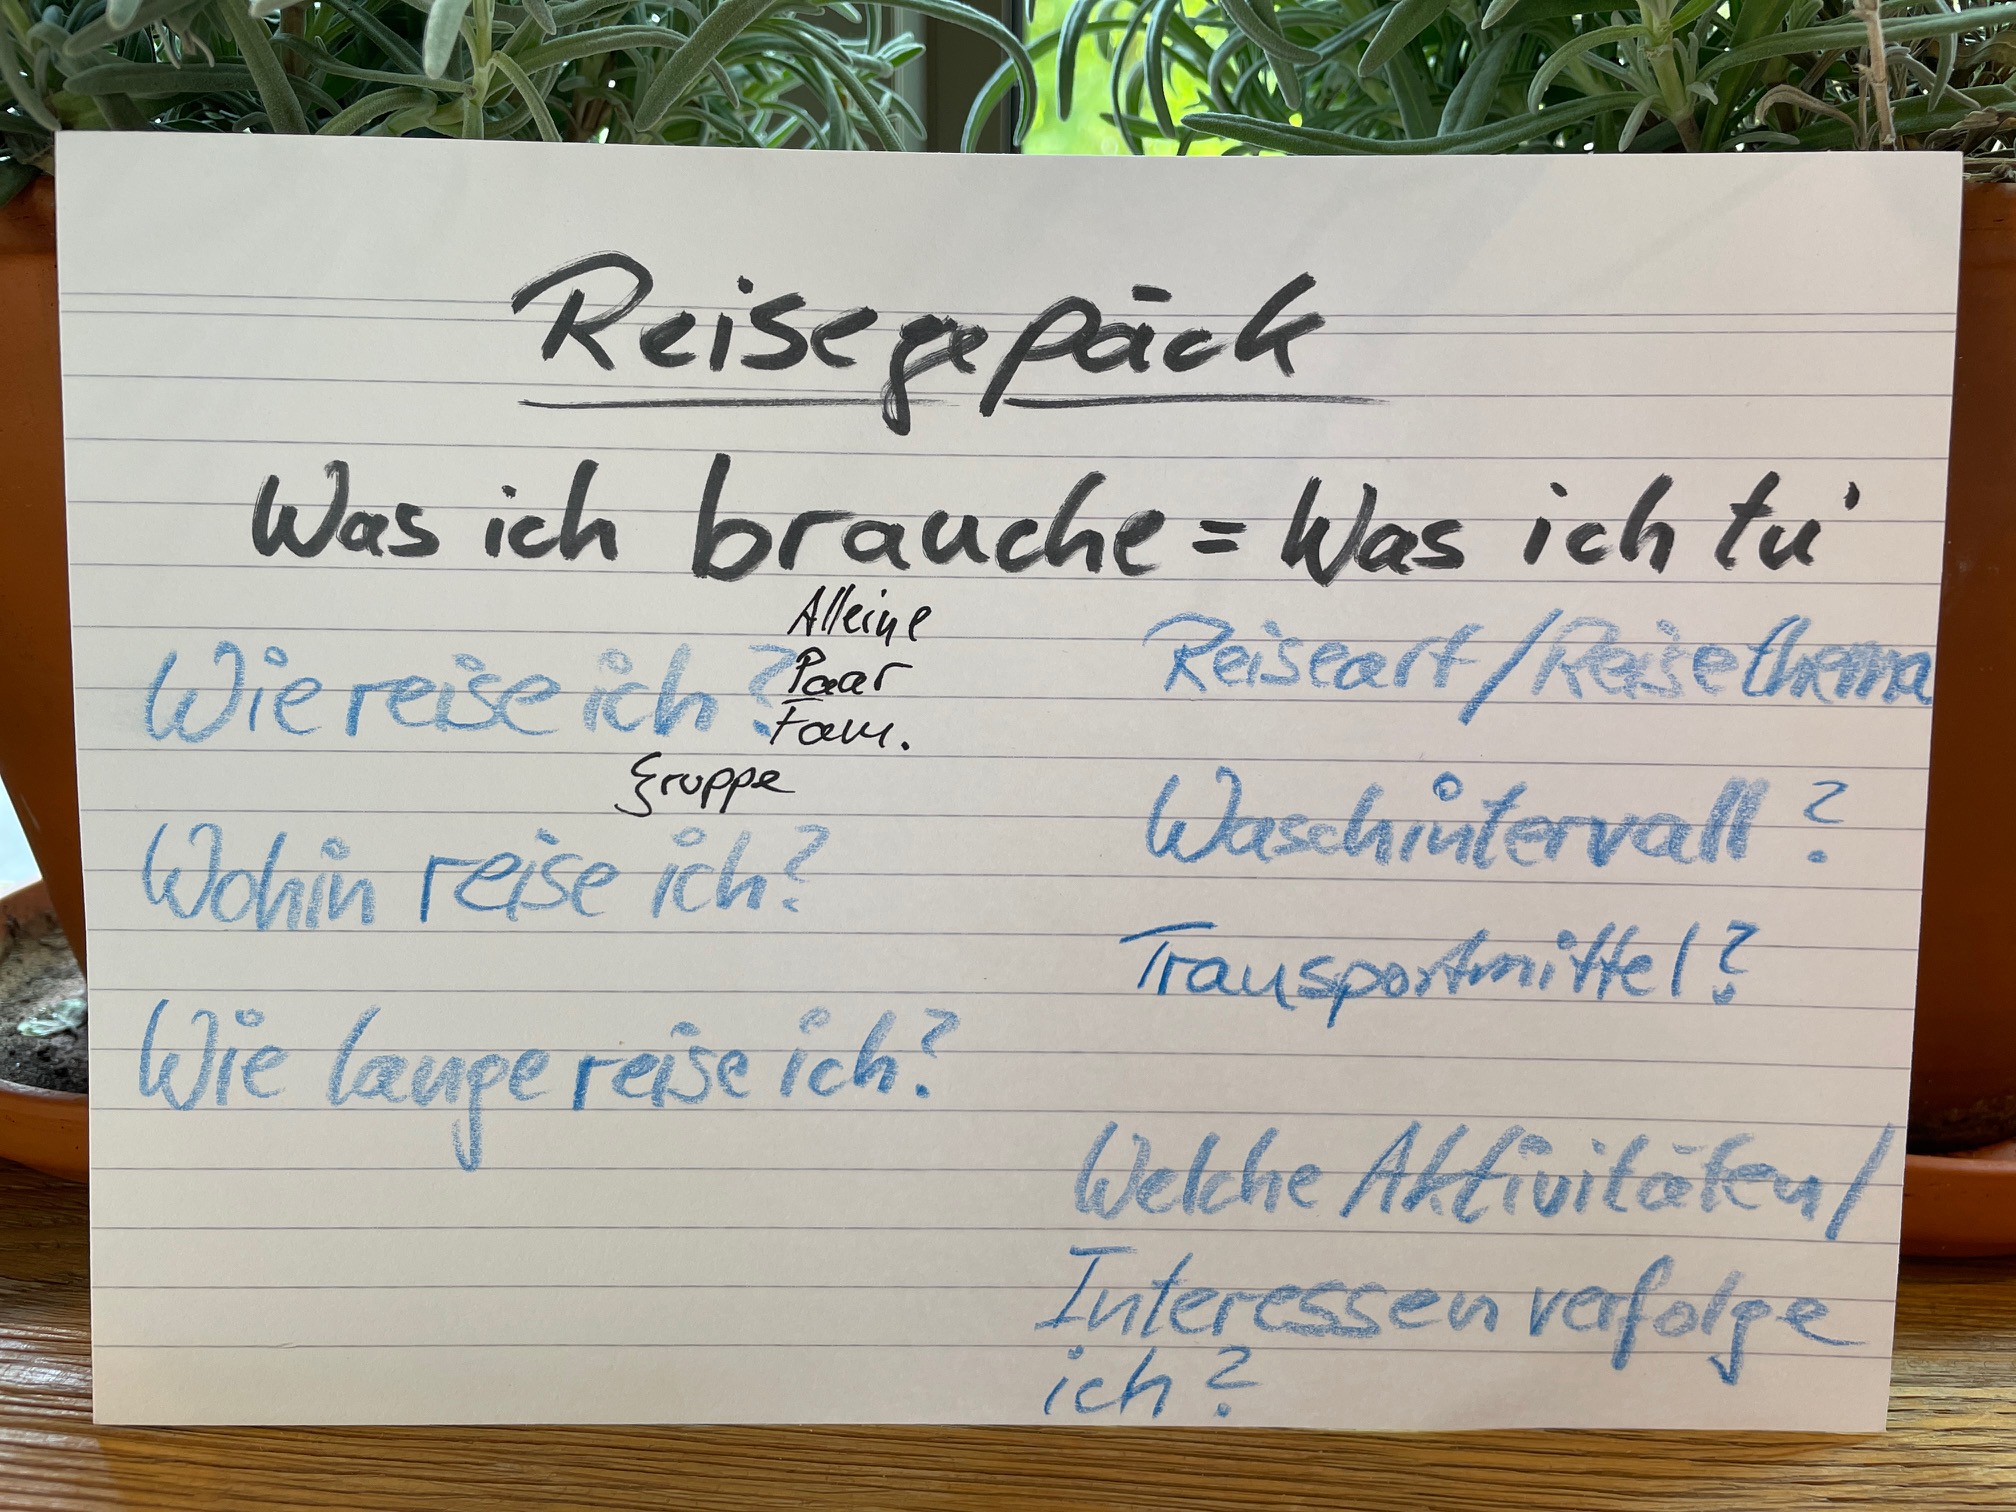 Reisegepäck
Was ich brauche = Was ich tu'
Wie reise ich?
Alleine
Paar
Fam.
Gruppe
Wohin reise ich?
Wie lange reise ich?
Reiseart/Reisethema
Waschintervall?
Transportmittel?
Welche Aktivitäten/
Interessen verfolge
ich?